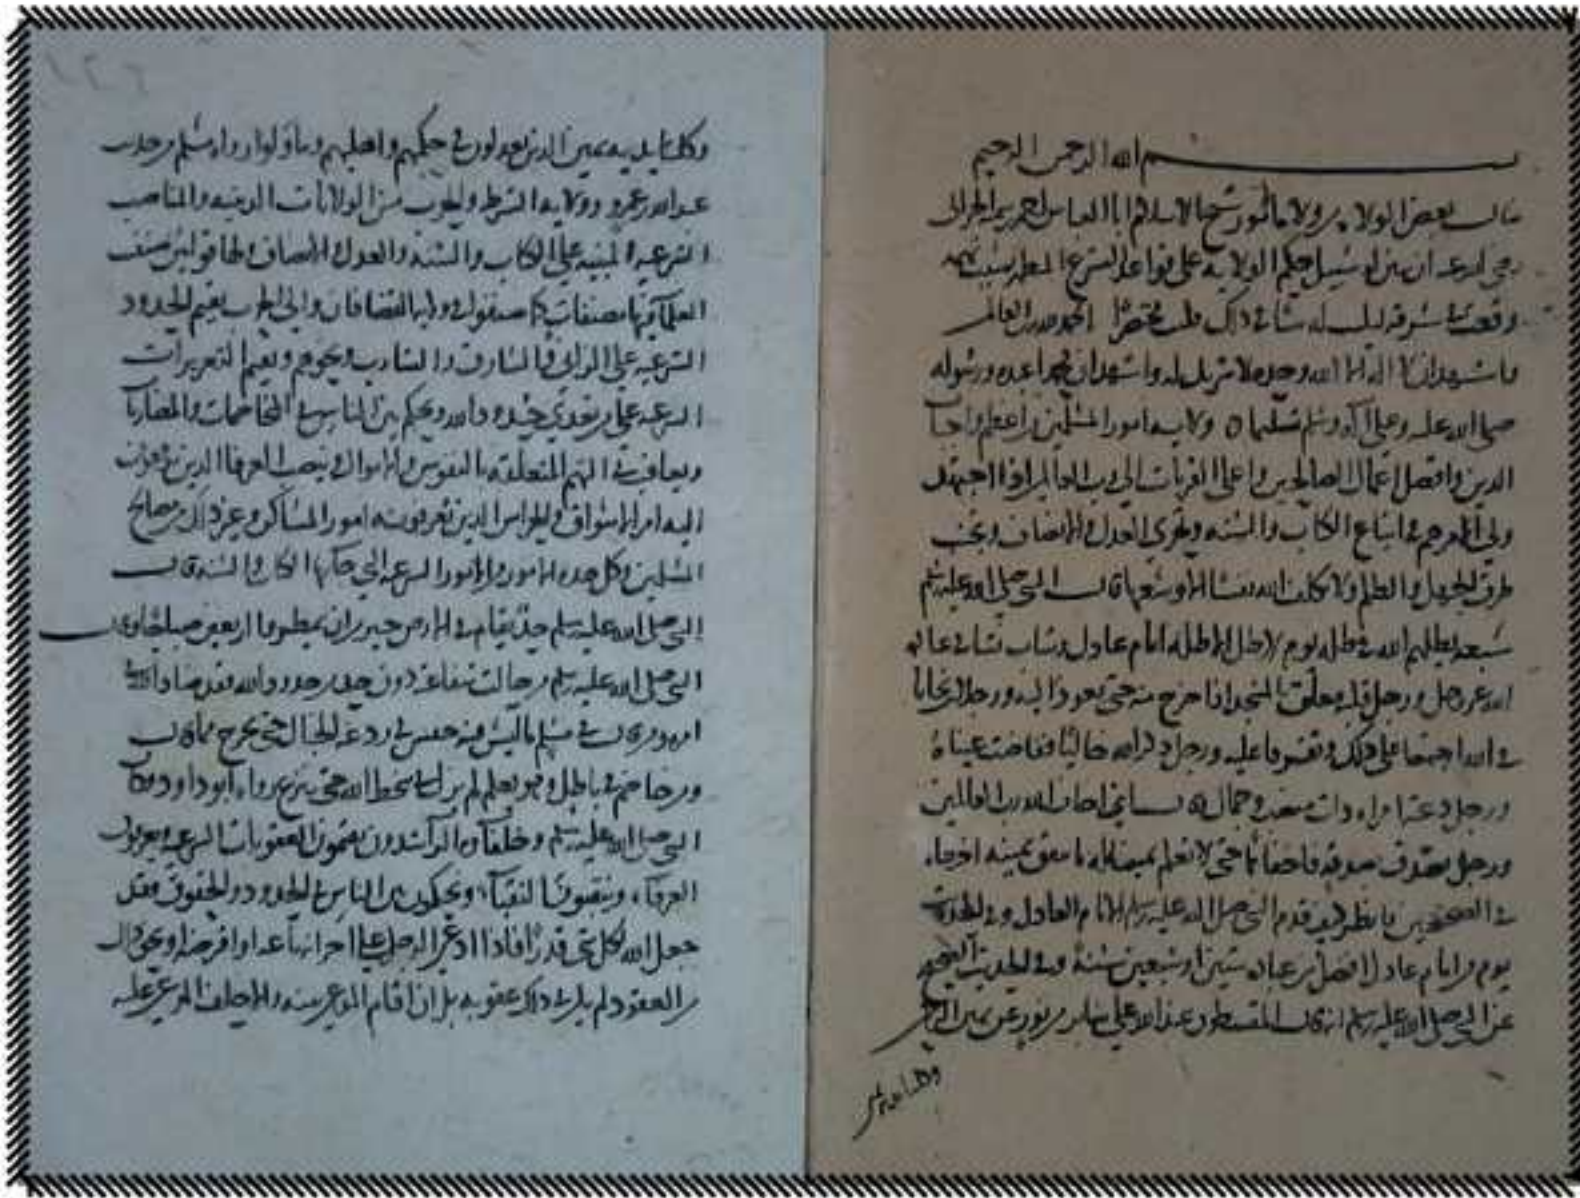 بسم الله الرحمن الرحيم
سال بعض الولاة شيخ الاسلام ابا العباس احمد
ان يبين له سبيل حكم الولاية على قواعد الشرع المطهر
الحمد لله رب العالمين
واشهد ان لا اله الا الله وحده لا شريك له واشهد ان محمدا عبده ورسوله
صلى الله عليه وعلى آله وسلم تسليما ولاية امور المسلمين من اعظم واجبات
الدين وافضل اعمال الصالحين واعلى القربات الى رب العالمين اذا اجتهد
ولي امرهم في اتباع الكتاب والسنه وتحري العدل والانصاف وتجنب
طرق الجهل والظلم ولا يكلف الله نفسا الا وسعها قال النبي صلى الله عليه وسلم
سبعه يظلهم الله في ظله يوم لا ظل الا ظله امام عادل وشاب نشا في عبادة
الله عز وجل ورجل قلبه معلق بالمسجد اذا خرج منه حتى يعود اليه ورجلان تحابا
في الله اجتمعا على ذلك وتفرقا عليه ورجل ذكر الله خاليا ففاضت عيناه
ورجل دعته امراه ذات منصب وجمال فقال اني اخاف الله رب العالمين
ورجل تصدق بصدقه فاخفاها حتى لا تعلم شماله ما تنفق يمينه اخرجاه
في الصحيحين فانظر كيف قدم النبي صلى الله عليه وسلم الامام العادل وفي الحديث
يوم من امام عادل افضل من عبادة ستين او سبعين سنة وفي الحديث الصحيح
عن النبي صلى الله عليه وسلم انه قال المقسطون عند الله على منابر من نور عن يمين الرحمن
وكلتا يديه يمين
وكلتا يديه يمين الذين يعدلون في حكمهم واهليهم وما ولوا رواه مسلم من حديث
عبد الله بن عمرو وولاية الشرط والحرب من الولايات الدينيه والمناصب
الشرعية المبنيه على الكتاب والسنه والعدل والانصاف ولها قوانين صنف
العلماء فيها مصنفات كما صنفوا في ولاية القضا فان والي الحرب يقيم الحدود
الشرعيه على الزاني والسارق والشارب ونحوهم ويقيم التعزيرات
الشرعيه على من تعدى حدود الله ويحكم بين الناس في المخاصمات والمضاربات
ويعاقب في التهم المتعلقه بالنفوس والاموال وينصب العرفا الذين يرفعون
اليه امر الاسواق والحراس الذين يعرفونه امور المساكن وغير ذلك من مصالح
المسلمين وكل هذه الامور من الامور الشرعيه التي جاء بها الكتاب والسنه قال
النبي صلى الله عليه وسلم حد يقام في الارض خير من ان يمطروا اربعين صباحا وقال
النبي صلى الله عليه وسلم من حالت شفاعته دون حد من حدود الله فقد ضاد الله في
امره ومن قال في مسلم ما ليس فيه حبس في ردغة الخبال حتى يخرج مما قال
ومن خاصم في باطل وهو يعلم لم يزل في سخط الله حتى ينزع رواه ابو داود وكان
النبي صلى الله عليه وسلم وخلفاؤه الراشدون يقيمون العقوبات الشرعيه ويعرفون
العرفاء وينقبون النقباء ويحكمون بين الناس في الحدود والحقوق وقد
جعل الله لكل شي قدرا فاذا ادعى الرجل على اخر انه او اقرضه او نحو ذلك
من العقود لم يكن في ذلك عقوبه بل ان اقام المدعي بينه والا حلف المدعى عليه